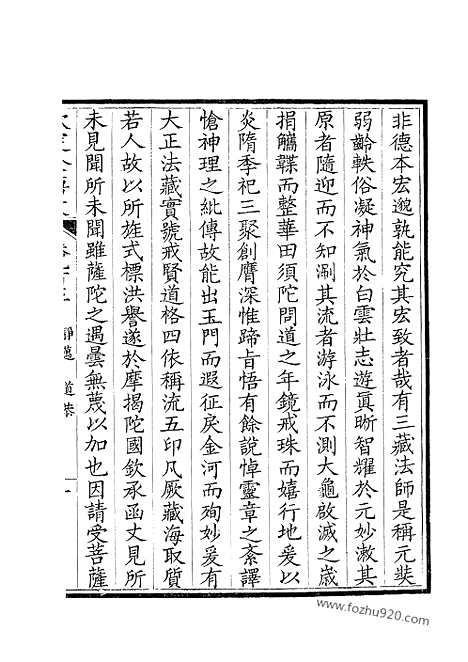 非德本宏邈孰能究其宏致者哉有三藏法師是稱元奘
弱齡軼俗凝神氣於白雲壯志遊真晰智耀於元妙漱其
原者隨迎而不知涮其流者游泳而不測大龜啟滅之歲
捐觿韘而整華田須陀問道之年鏡戒珠而嬉行地爰以
炎隋季祀三聚創膺深惟蹄旨悟有餘說悼靈章之紊譯
愴神理之紕傳故能出玉門而遐征戾金河而殉妙爰有
大正法藏實號戒賢道格四依稱流五印凡厥藏海取質
若人故以所旌式標洪譽遂於摩揭陀國欽承函丈見所
未見聞所未聞雖薩陀之遇曇無蔑以加也因請受菩薩
靜邁 道恭
www.fozhu920.com